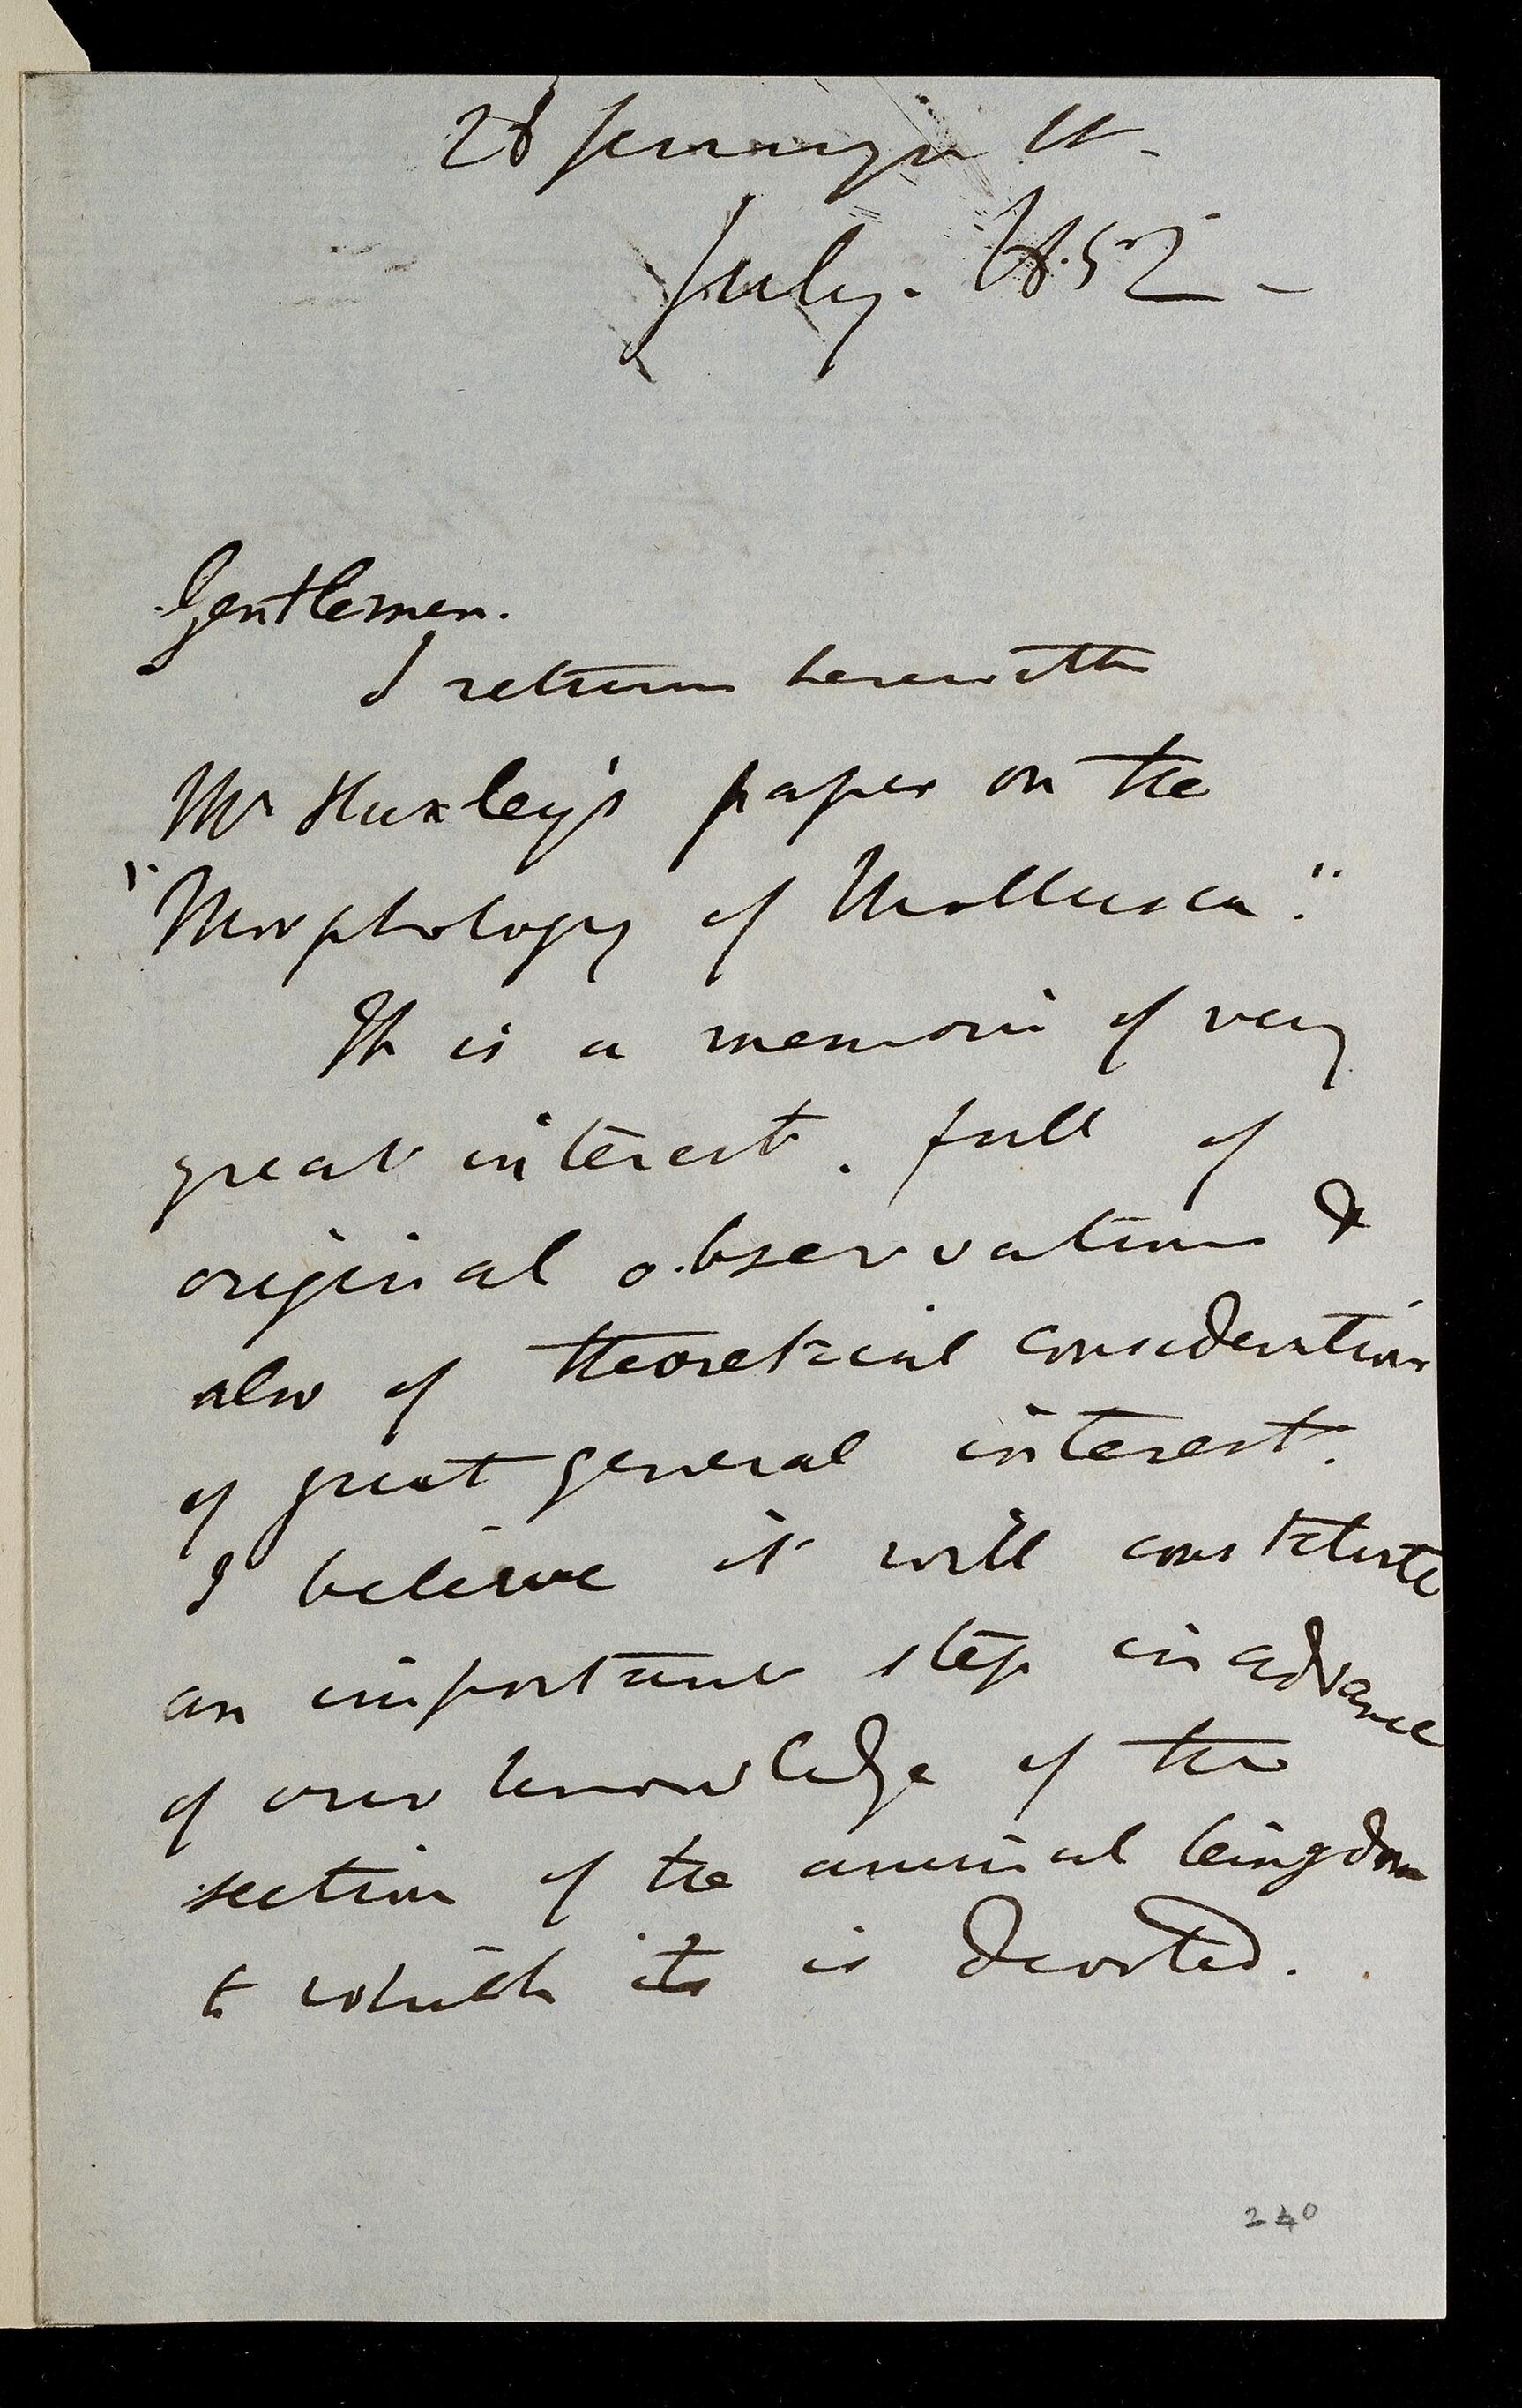 28 Jermyn St -
July. 1852 -
Gentlemen.
I return herewith
Mr Huxley's paper on the
"Morphology of Mollusca."
It is a memoir of very
great interest. full of
original observation &
also of theoretical considerations
of great general interest.
I believe it will constitute
an important step in advance
of our knowledge of the
section of the animal kingdom
to which it is devoted.
240